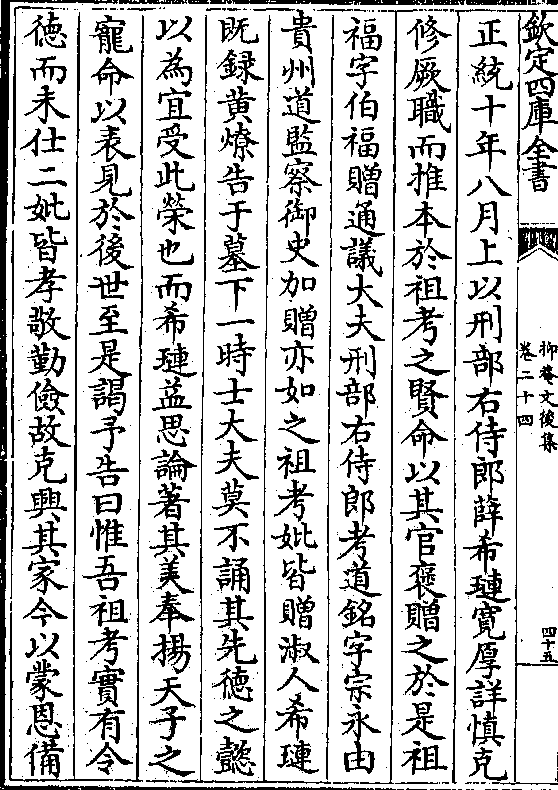 欽定四庫全書
抑菴文後集
卷二十四
四十五
正統十年八月上以刑部右侍郎薛希璉寛厚詳慎克
修厥職而推本於祖考之賢命以其官褒贈之於是祖
福字伯福贈通議大夫刑部右侍郎考道銘字宗永由
貴州道監察御史加贈亦如之祖考妣皆贈淑人希璉
既録黄燎告于墓下一時士大夫莫不誦其先德之懿
以為宜受此榮也而希璉益思論著其美奉揚天子之
寵命以表見於後世至是謁予告曰惟吾祖考實有令
徳而未仕二妣皆孝敬勤儉故克興其家今以蒙恩備